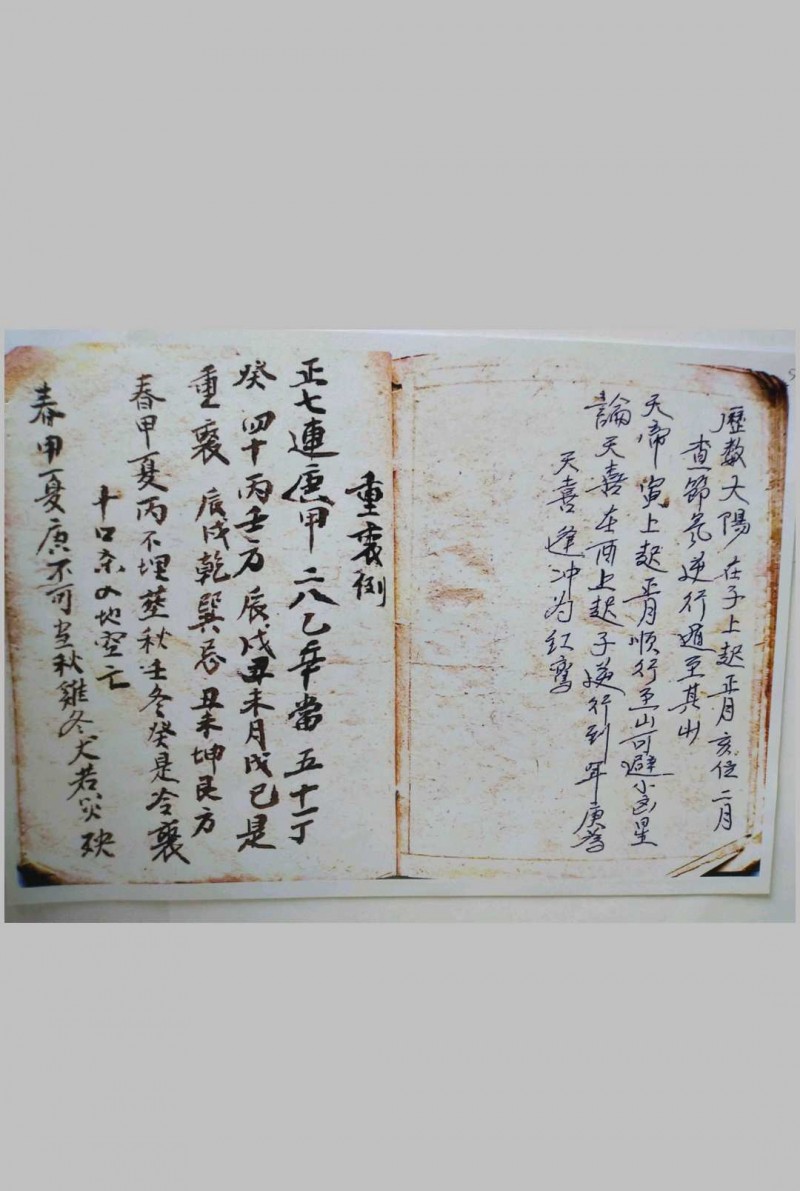 歷數太陽在子上起正月亥位二月
查節氣逆行遁至其山
天帝寅上起正月順行至山可避小兒星
論天喜在酉上起子逆行到年庚為
天喜逢冲为红鸞
重喪例
正七連庚甲二八乙辛當五十一丁
癸四十丙壬方辰戌丑未月戊己是
重喪辰戌乾巽忌丑未坤艮方
春甲夏丙不埋塟秋壬冬癸是冷喪
十口地空亡
春甲夏庚不可当秋雞冬犬若災殃